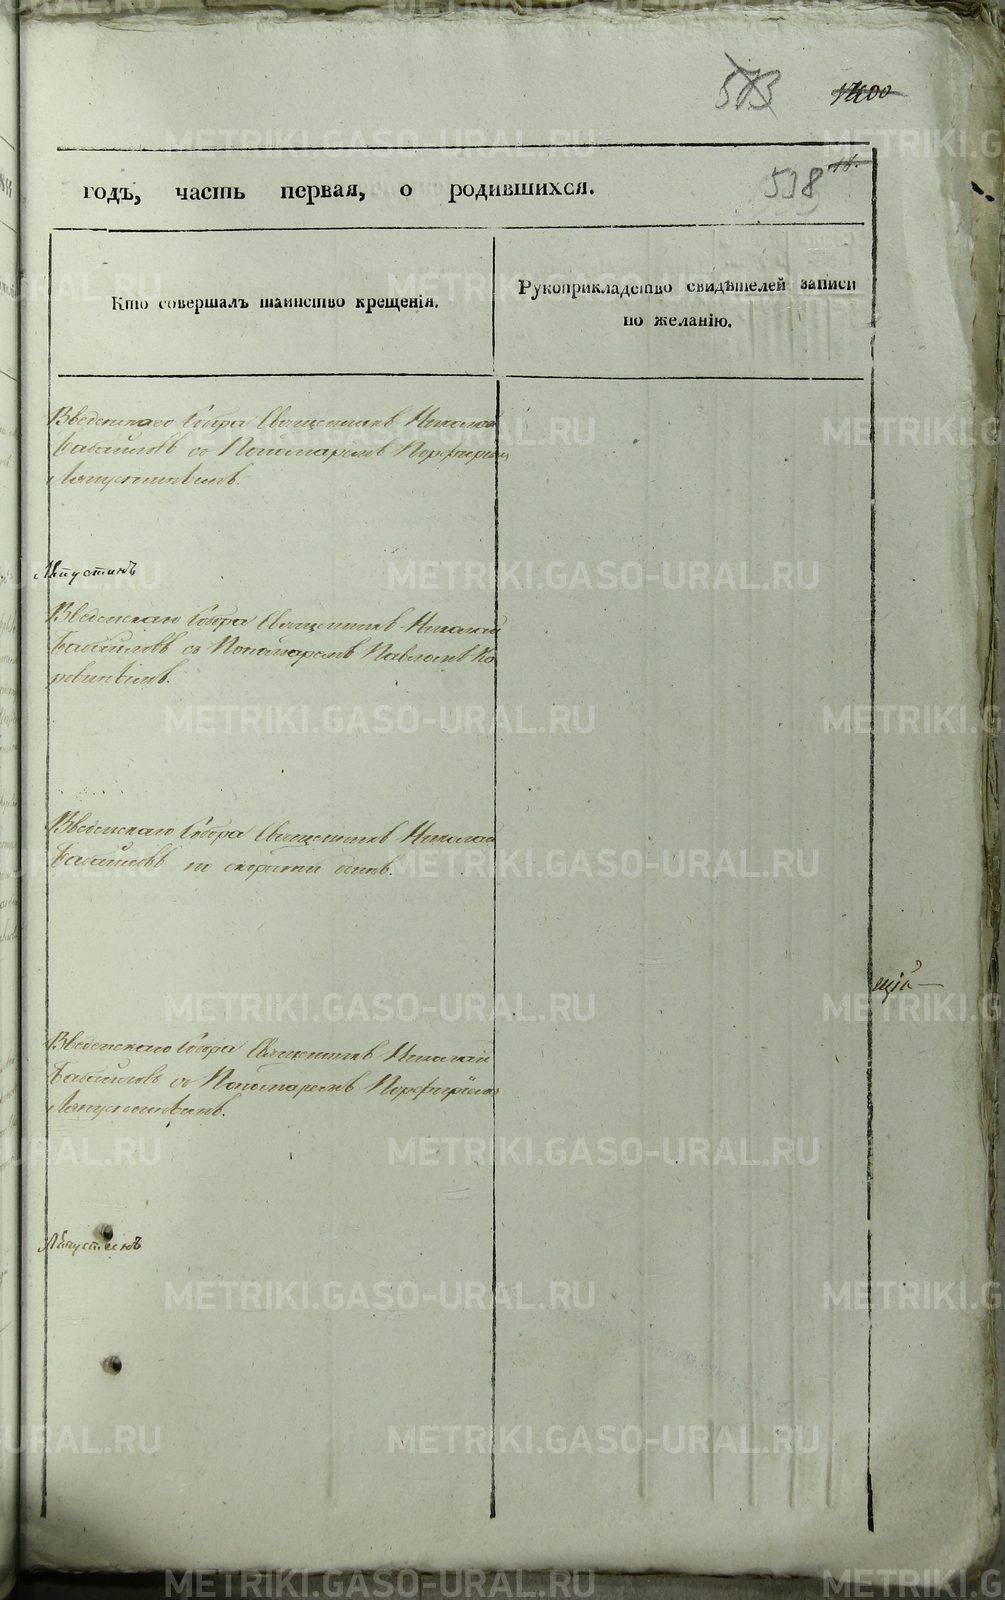 573 1400
годъ, часть первая, о родившихся. 538 18.
Кто совершалъ таинство крещенія.
Рукоприкладство свидѣтелей записи
по желанію.
Введенскаго Собора Священникъ Николай
Бабайловъ съ Пономаремъ Порфиріемъ
Ляпустинымъ.
Ляпустинъ
Введенскаго Собора Священникъ Николай
Бабайловъ съ Пономаремъ Павломъ
Введенскаго Собора Священникъ Николай
Бабайловъ по скорости одинъ.
щій
Введенскаго Собора Священникъ Николай
Бабайловъ съ Пономаремъ Порфиріемъ
Ляпустинымъ.
Ляпустинъ
METRIKI.GASO-URAL.RU